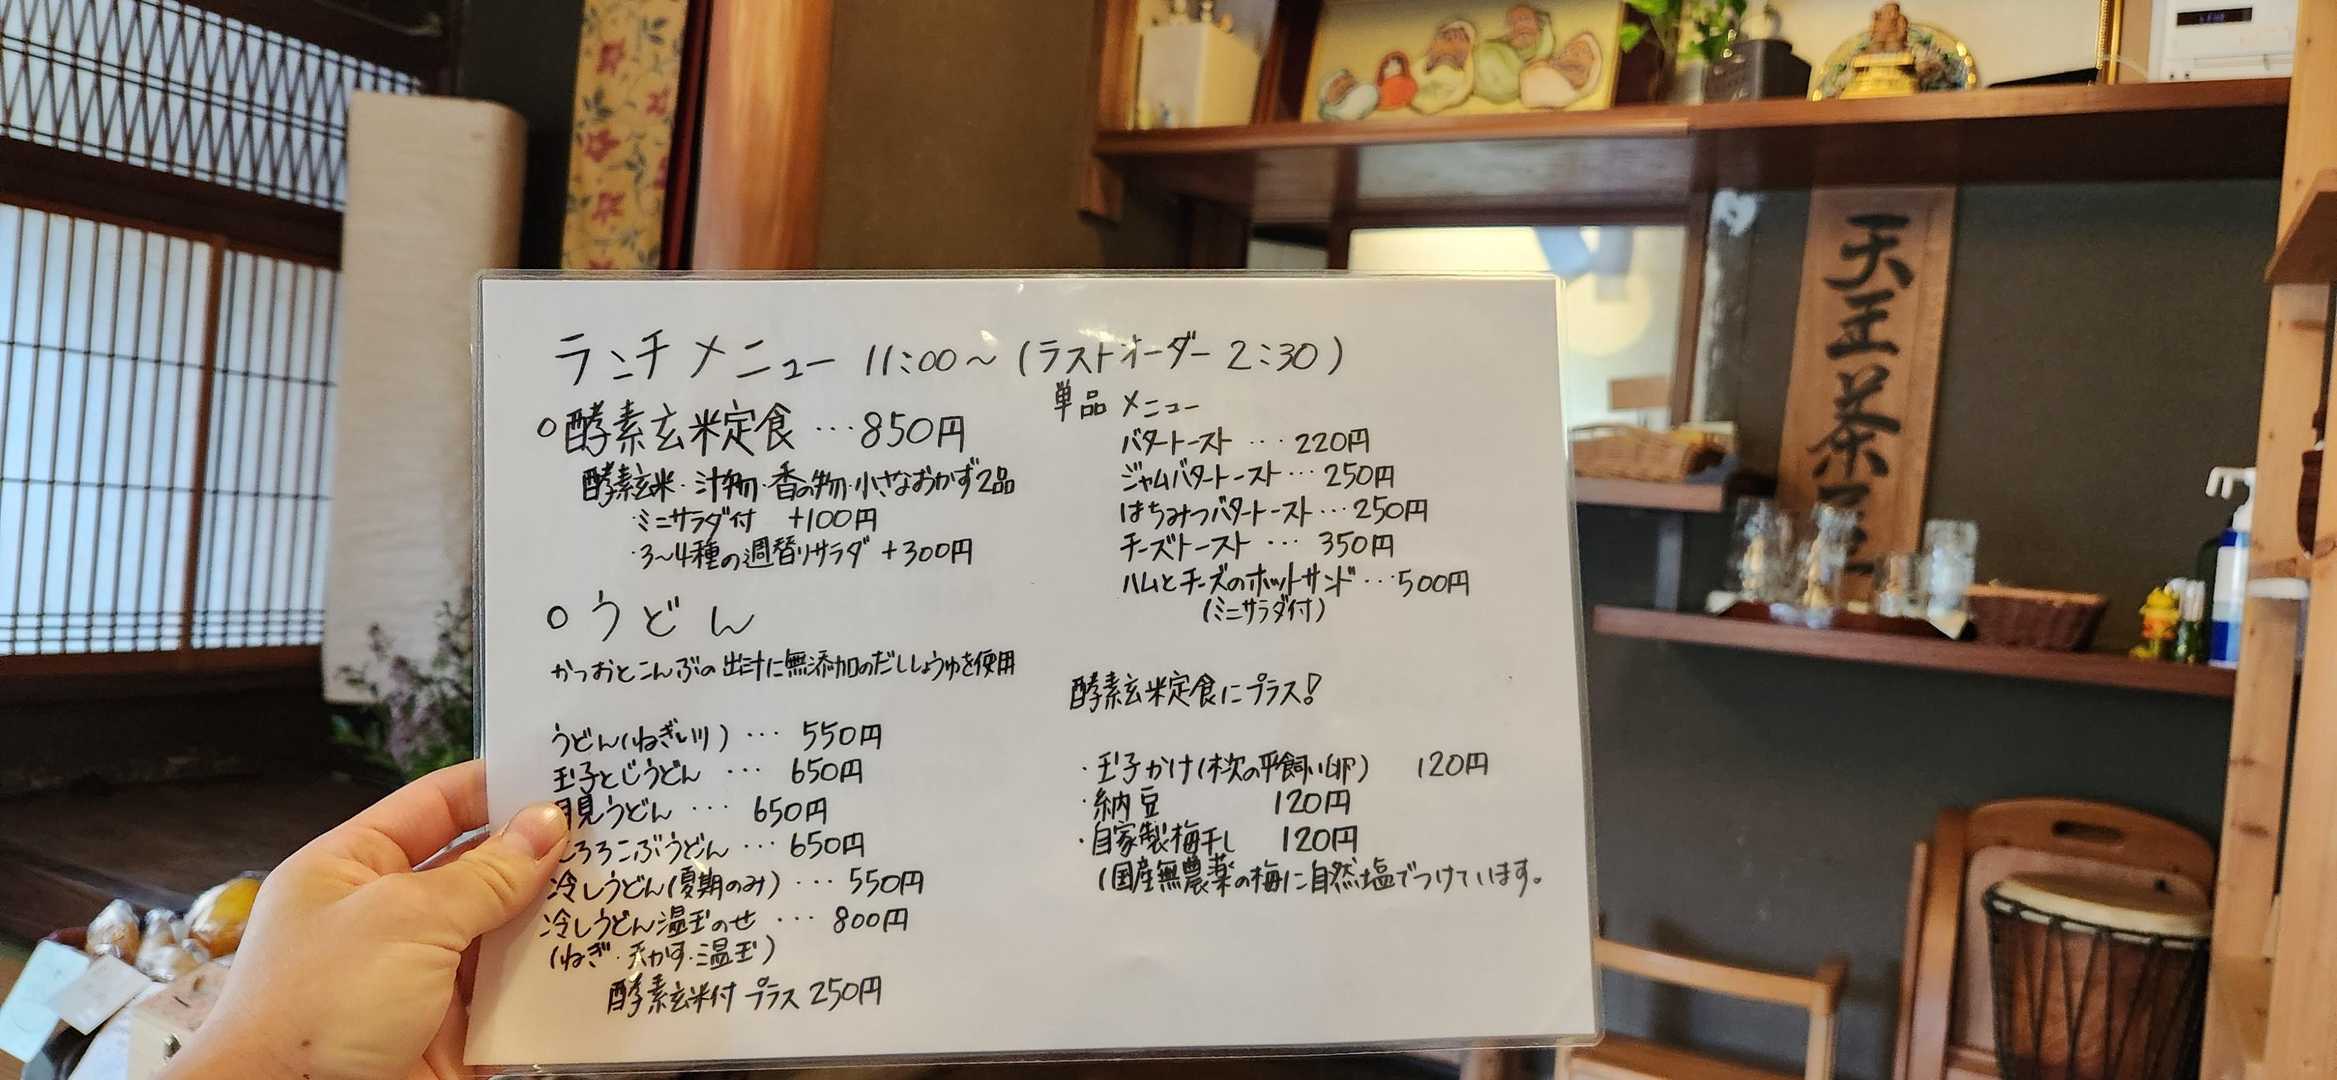 ランチメニュー 11:00〜(ラストオーダー 2:30)
○酵素玄米定食 … 850円
酵素玄米・汁物・香の物・小さなおかず2品
・ミニサラダ付 +100円
・3〜4種の週替りサラダ +300円
○うどん
かつおとこんぶの出汁に無添加のだししょうゆを使用
うどん(ねぎ入り) … 550円
玉子とじうどん … 650円
月見うどん … 650円
とろろこぶうどん … 650円
冷しうどん(夏期のみ) … 550円
冷しうどん温玉のせ … 800円
(ねぎ・天かす・温玉)
酵素玄米付 プラス 250円
単品 メニュー
バタートースト … 220円
ジャムバタートースト … 250円
はちみつバタートースト … 250円
チーズトースト … 350円
ハムとチーズのホットサンド … 500円
(ミニサラダ付)
酵素玄米定食にプラス!
・玉子かけ(木次の平飼い卵) 120円
・納豆 120円
・自家製梅干し 120円
(国産無農薬の梅に自然塩でつけています。
天正茶屋